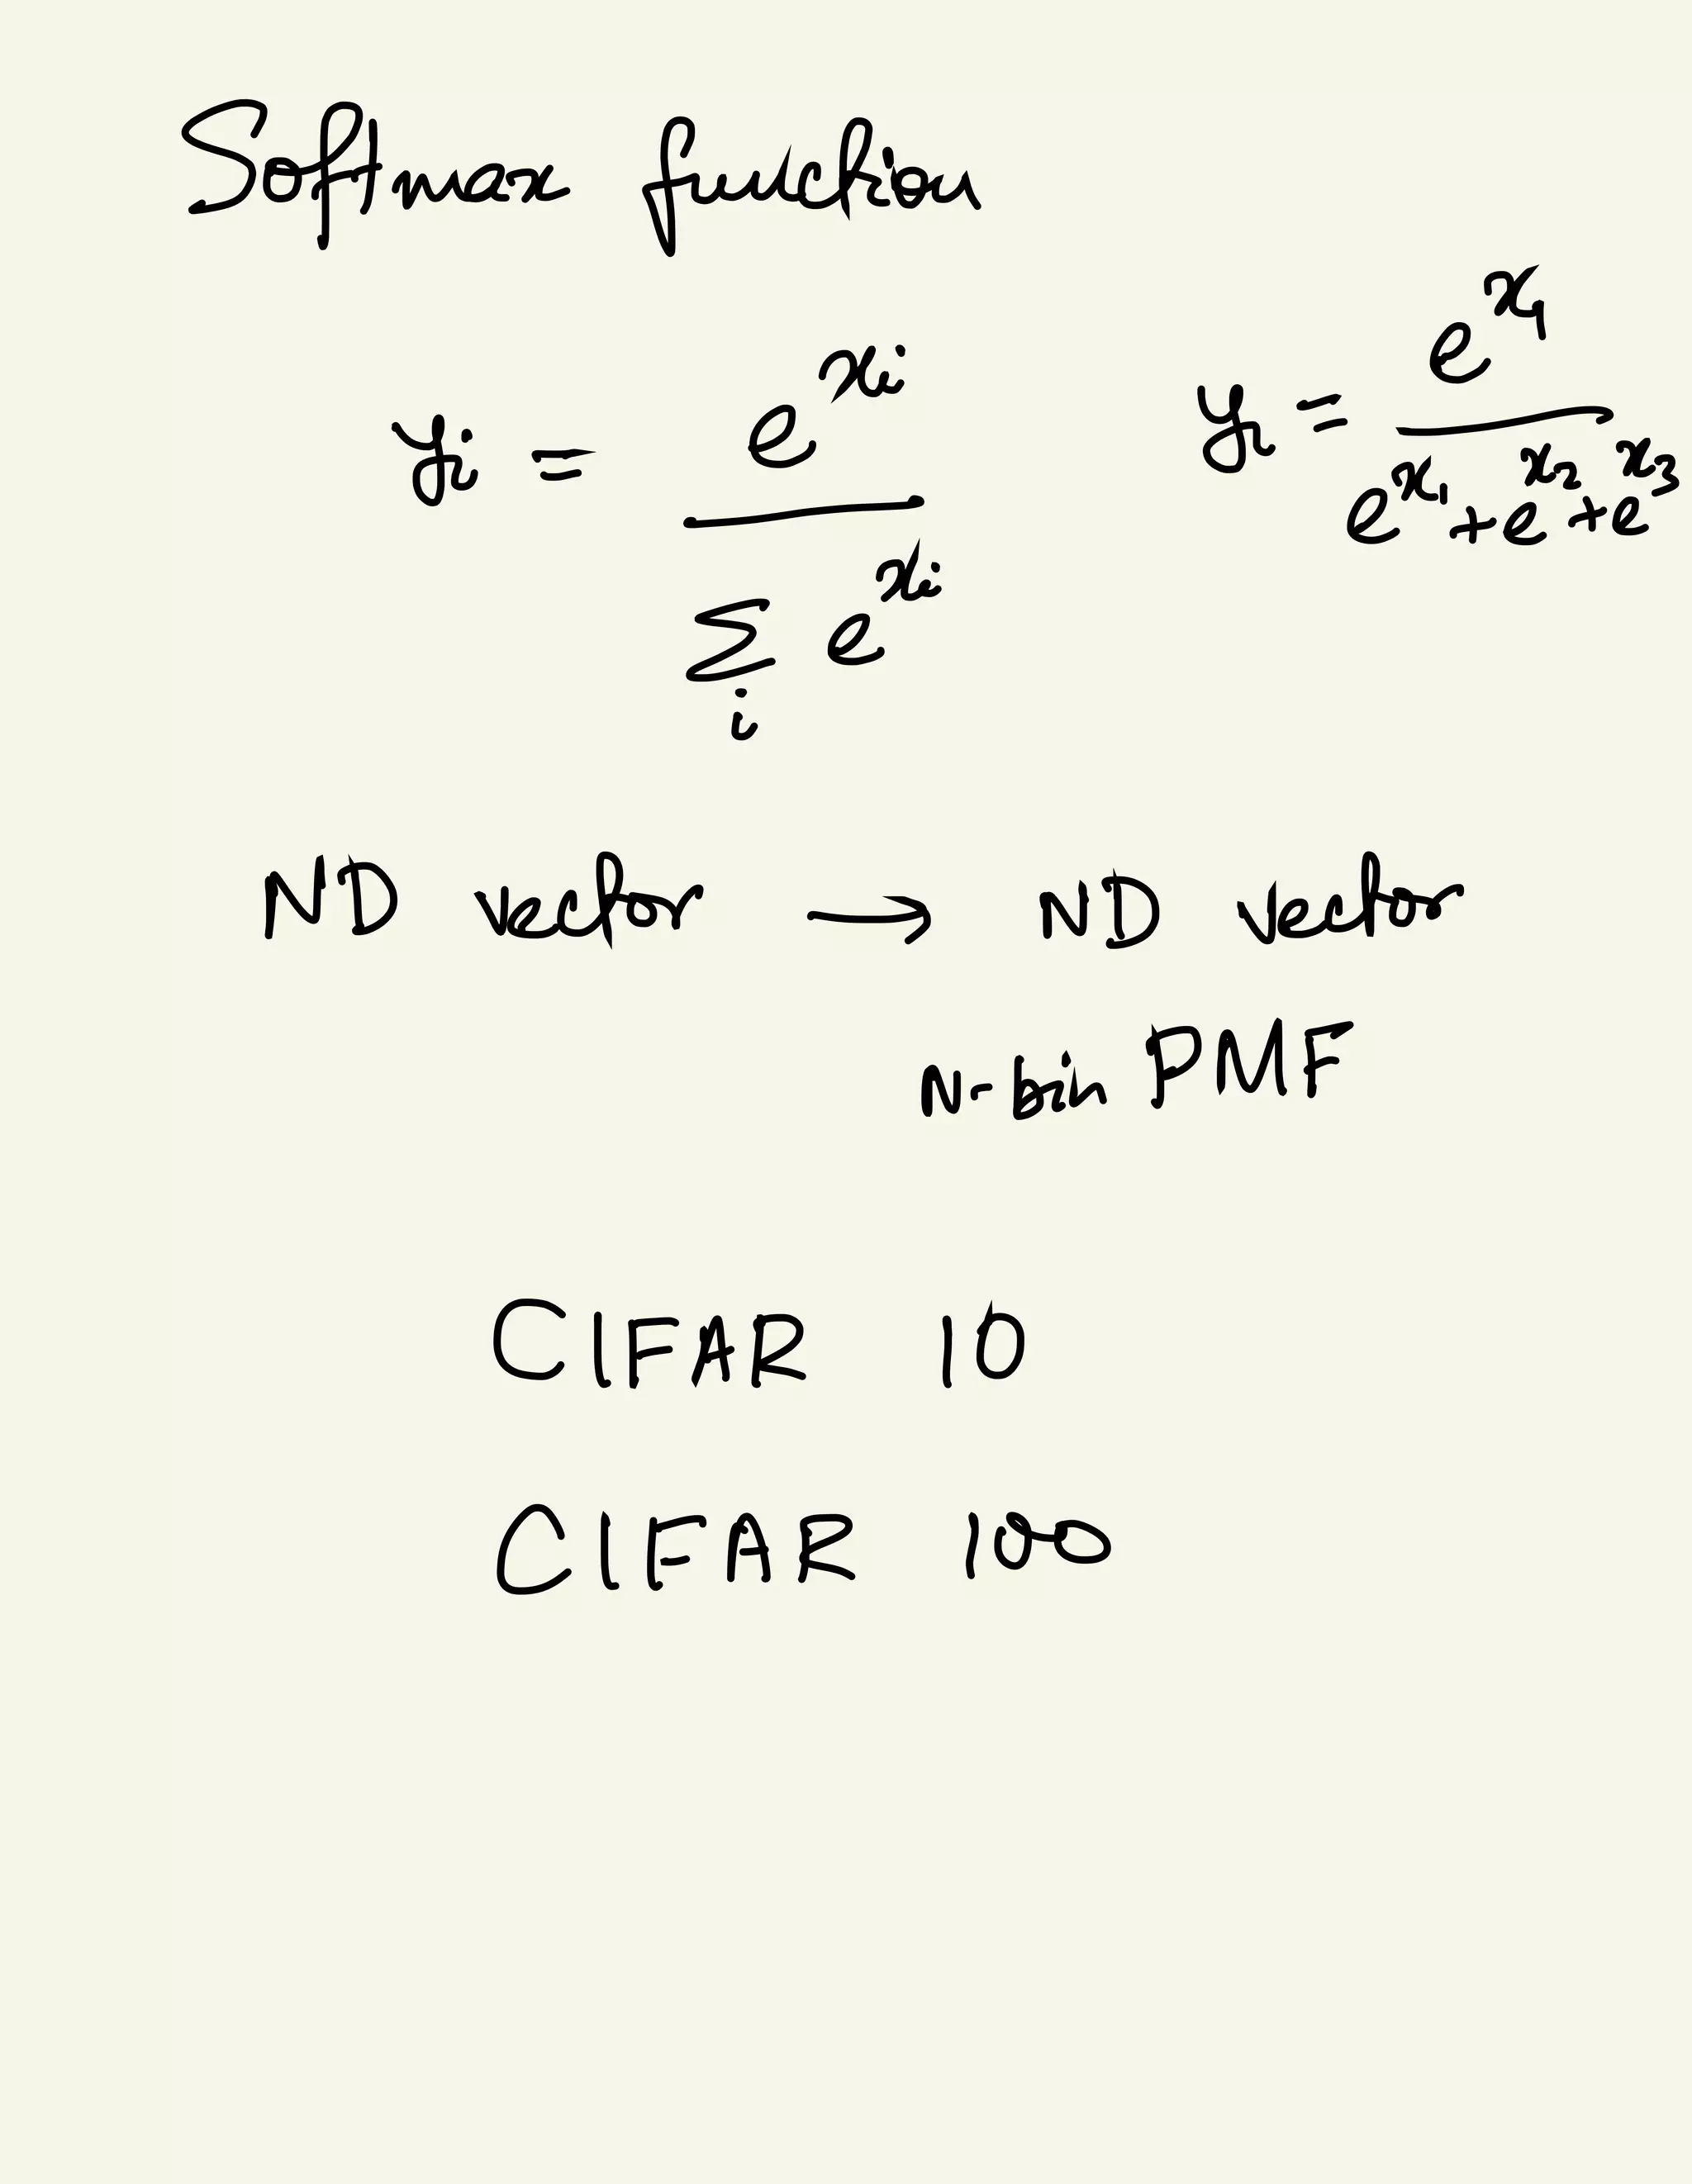 Softmax function
yᵢ = e^{xᵢ} / Σᵢ e^{xᵢ}
y₁ = e^{x₁} / e^{x₁} + e^{x₂} + e^{x₃}
ND vector → ND vector
N-bin PMF
CIFAR 10
CIFAR 100